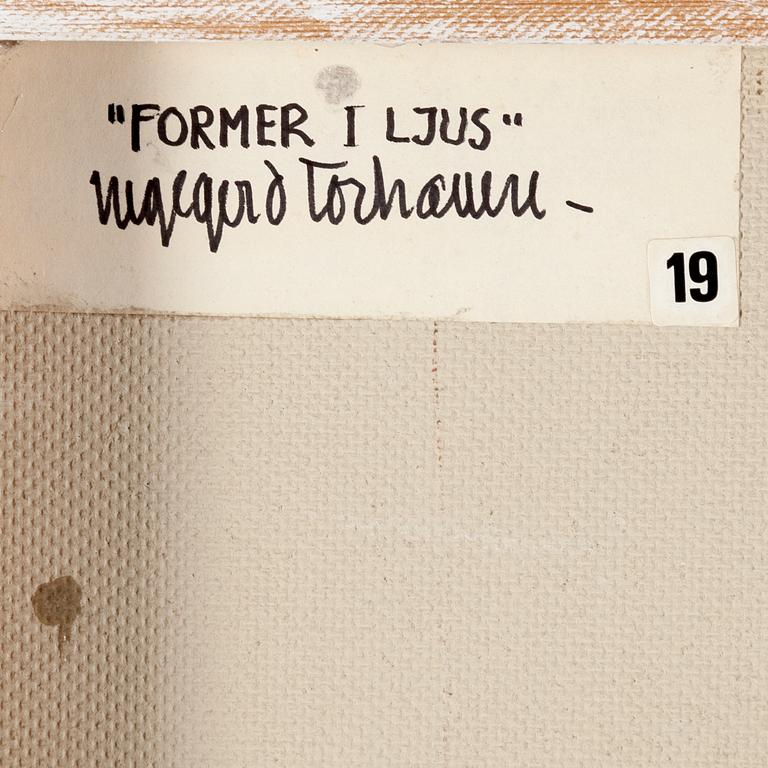 "FORMER I LJUS"
Ingegerd Torhamn -
19